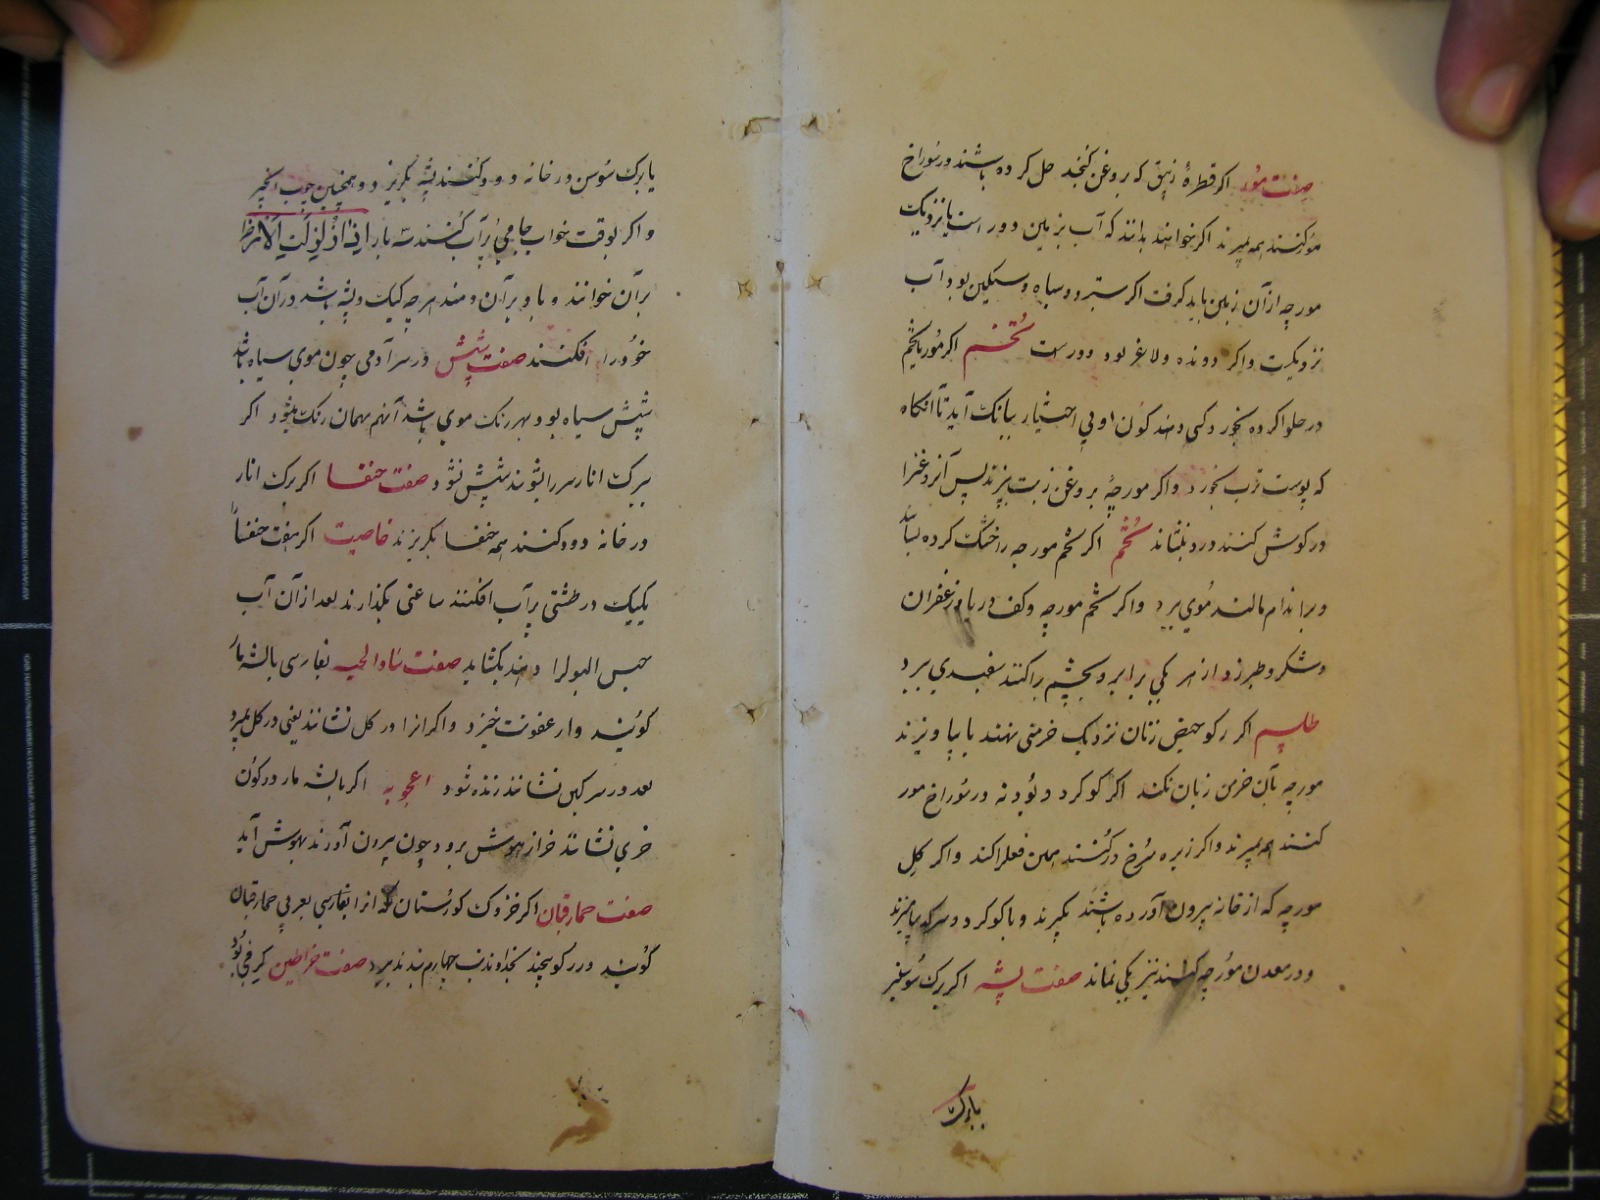 صفت مور اکر قطرهٔ زیبق که بروغن کنجد حل کرده باشند در سوراخ
مور کنند همه بمیرند اکر خواهند بدانند که آب بزمین دور است یا نزدیک
مورچه از آن زمین باید کرفت اکر ستبر و سیاه و سنکین بود آب
نزدیکست و اکر دونده و لاغر بود دور است تخم اکر مور یا تخم
در حلوا کرده بخورد کسی دهند کون او بی اختیار ببانک آید تا آنکاه
که پوست ترب بخورد و اکر مورچه بروغن زیت بپزند پس آن روغن را
در کوش کنند درد بنشاند تخم اکر تخم مورچه را خشک کرده بسایند
و بر اندام مالند موی ببرد و اکر تخم مورچه و کف دریا و زعفران
و شکر و طبرزد از هر یکی برابر و بچشم پراکنند سفیدی ببرد
طلسم اکر رکو حیض زنان نزدیک خرمنی نهند یا بیاویزند
مورچه بآن خرمن زیان نکند اکر کوکرد و پودنه در سوراخ مور
کنند همه بمیرند و اکر زیره سرخ در کنند همین فعل را کند و اکر کل
مورچه که از خانه بیرون آورده باشند بکیرند و با کوکرد و سرکه بیامیزند
و در معدن مورچه کنند نیز یکی نماند صفت پشه اکر برک سوسن
یا برک
یا برک سوسن در خانه دود کنند پشه بکریزد و همچنین چوب انجیر
و اکر بوقت خواب جامی پر آب کنند سه بار اذا زلزلت الارض
بر آن خوانند و باد بر آن دمند هر چه کیک و پشه باشد در آن آب
خود را افکنند صفت شپش در سر آدمی چون موی سیاه باشد
شپش سیاه بود و بهر رنک موی باشد آنهم بهمان رنک میشود اکر
ببرک انار سر را بشویند شپش نشود صفت خنفسا اکر برک انار
در خانه دود کنند همه خنفسا بکریزند خاصیت اکر هفت خنفسا
یکیک در طشتی پر آب افکنند ساعتی بکذارند بعد از آن آب
حبس البول را دهند بکشاید صفت بفارسی بالشه مار
کویند و از عفونت خیزد و اکر انرا در کل نشانند یعنی در کل بمیرد
بعد در سرکین نشانند زنده شود اعجوبه اکر بالشه مار در کون
خری نشانند خر از هوش برود چون بیرون آورند بهوش آید
صفت حمارقبان اکر خزوک کورستان که انرا بفارسی بعربی حمارقبان
کویند در رکو پیچند بخداوند تب چهارم بندند ببرد صفت خراطین کرمی بود